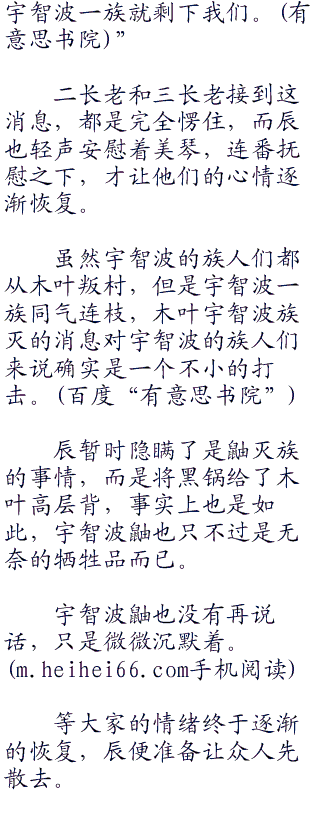 宇智波一族就剩下我们。(有
意思书院)”
二长老和三长老接到这
消息，都是完全愣住，而辰
也轻声安慰着美琴，连番抚
慰之下，才让他们的心情逐
渐恢复。
虽然宇智波的族人们都
从木叶叛村，但是宇智波一
族同气连枝，木叶宇智波族
灭的消息对宇智波的族人们
来说确实是一个不小的打
击。(百度“有意思书院”)
辰暂时隐瞒了是鼬灭族
的事情，而是将黑锅给了木
叶高层背，事实上也是如
此，宇智波鼬也只不过是无
奈的牺牲品而已。
宇智波鼬也没有再说
话，只是微微沉默着。
(m.heihei66.com手机阅读)
等大家的情绪终于逐渐
的恢复，辰便准备让众人先
散去。